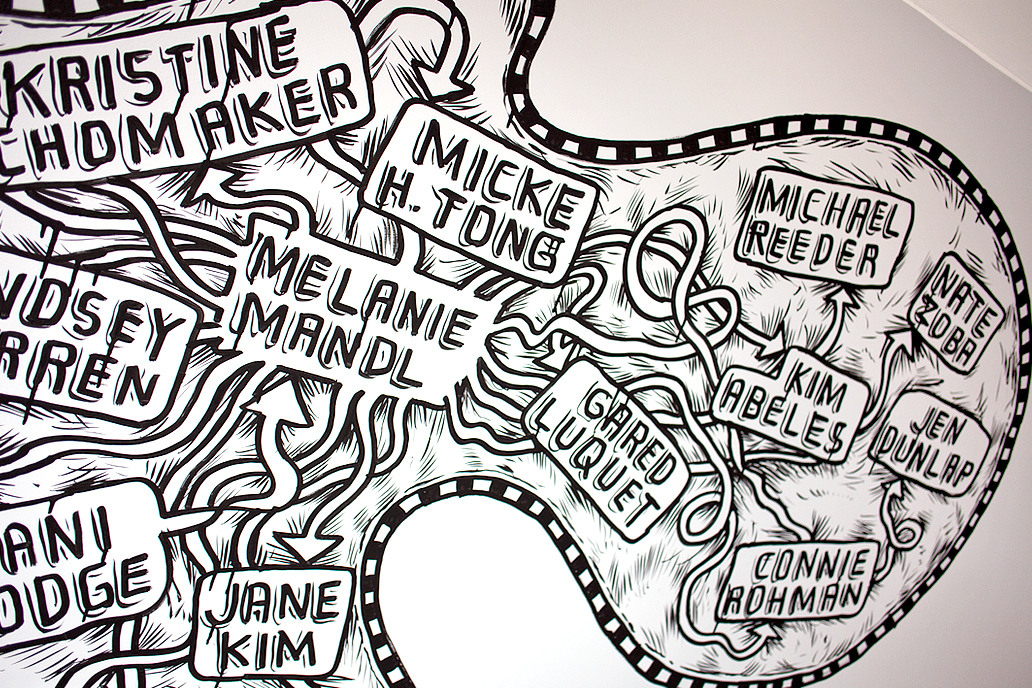 KRISTINE
CHOMAKER
MICKE
H. TONG
MICHAEL
REEDER
NATE
ZOBA
MELANIE
MANDL
NDSEY
RREN
KIM
ABELES
GARED
LUQUET
JEN
DUNLAP
ANI
ODGE
JANE
KIM
CONNIE
ROHMAN